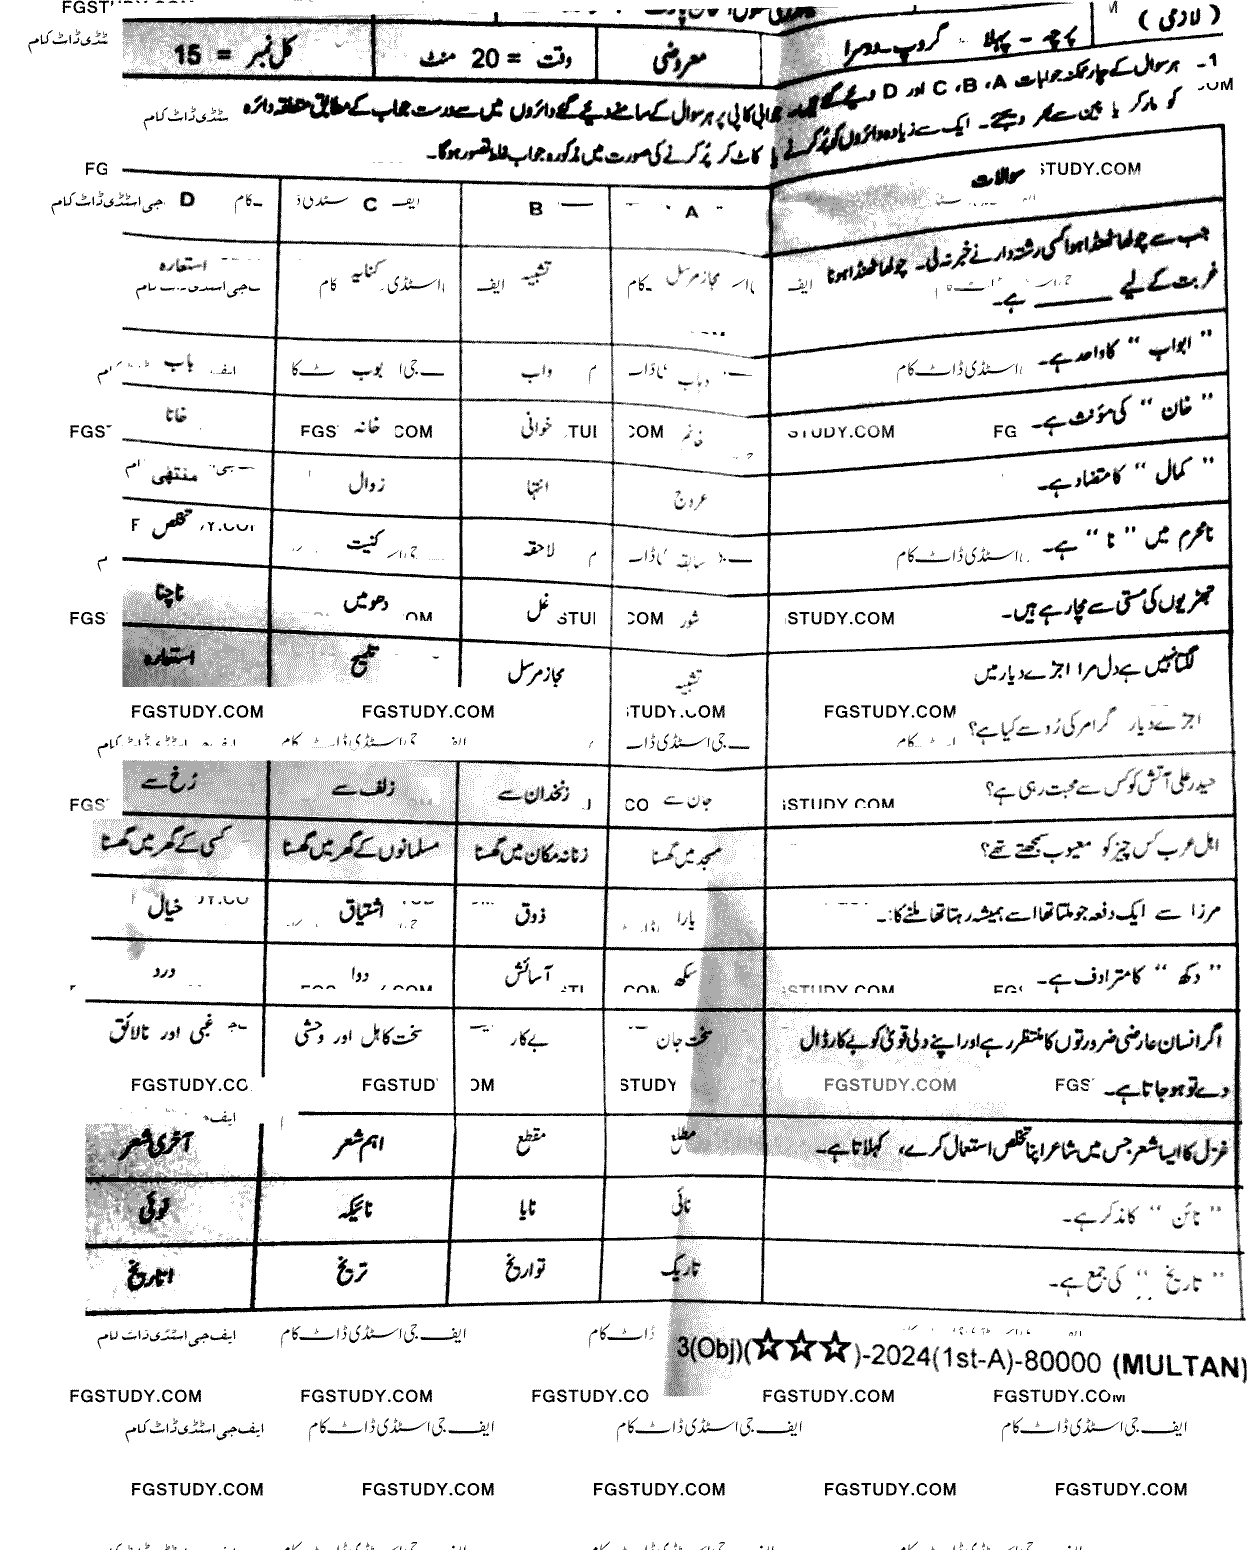 ( لازمی )
پرچہ - پہلا - گروپ-دوسرا
معروضی
وقت = 20 منٹ
کل نمبر = 15
1- ہر سوال کے چار ممکنہ جوابات A، B، C اور D دیئے گئے ہیں۔ جوابی کاپی پر ہر سوال کے سامنے دیئے گئے دائروں میں سے درست جواب کے مطابق متعلقہ دائرہ
کو مارکر یا پین سے بھر دیجئے۔ ایک سے زیادہ دائروں کو پُر کرنے یا کاٹ کر پُر کرنے کی صورت میں مذکورہ جواب غلط تصور ہوگا۔
سوالات A B C D
جب سے چولھا ٹھنڈا ہوا کسی رشتہ دار نے خبر نہ لی۔ چولھا ٹھنڈا ہونا
غربت کے لیے ______ ہے۔ مجاز مرسل تشبیہ کنایہ استعارہ
" ابواب " کا واحد ہے۔ دباب واب بوب باب
" خان " کی مؤنث ہے۔ خانم خوانی خانہ خانا
" کمال " کا متضاد ہے۔ عروج انتہا زوال منتھی
نامحرم میں " نا " ہے۔ سابقہ لاحقہ کنیت تخلص
جھڑیوں کی مستی سے مچا رہے ہیں۔ شور غل دھومیں ناچنا
لگتا نہیں ہے دل مرا اجڑے دیار میں
اجڑے دیار گرامر کی رُو سے کیا ہے؟ تشبیہ مجاز مرسل تلمیح استعارہ
حیدر علی آتش کو کس سے محبت رہی ہے؟ جان سے زنخدان سے زلف سے رُخ سے
اہل عرب کس چیز کو معیوب سمجھتے تھے؟ مسجد میں گھسنا زنانہ مکان میں گھسنا مسلمانوں کے گھر میں گھسنا کسی کے گھر میں گھسنا
مرزا سے ایک دفعہ جو ملتا تھا اسے ہمیشہ رہتا تھا ملنے کا:۔ یارا ذوق اشتیاق خیال
" دکھ " کا مترادف ہے۔ سکھ آسائش دوا درد
اگر انسان عارضی ضرورتوں کا منتظر رہے اور اپنے دلی قویٰ کو بے کار ڈال
دے تو ہو جاتا ہے۔ سخت جان بے کار سخت کاہل اور وحشی غبی اور نالائق
غزل کا ایسا شعر جس میں شاعر اپنا تخلص استعمال کرے، کہلاتا ہے۔ مطلع مقطع اہم شعر آخری شعر
" نائن " کا مذکر ہے۔ نائی نایا نائیکہ نوئی
" تاریخ " کی جمع ہے۔ تاریک تواریخ تریخ اتاریخ
3(Obj)(☆☆☆)-2024(1st-A)-80000 (MULTAN)
FGSTUDY.COM FGSTUDY.COM FGSTUDY.CO FGSTUDY.COM FGSTUDY.COM
ایف جی اسٹڈی ڈاٹ کام ایف جی اسٹڈی ڈاٹ کام ایف جی اسٹڈی ڈاٹ کام ایف جی اسٹڈی ڈاٹ کام
FGSTUDY.COM FGSTUDY.COM FGSTUDY.COM FGSTUDY.COM FGSTUDY.COM